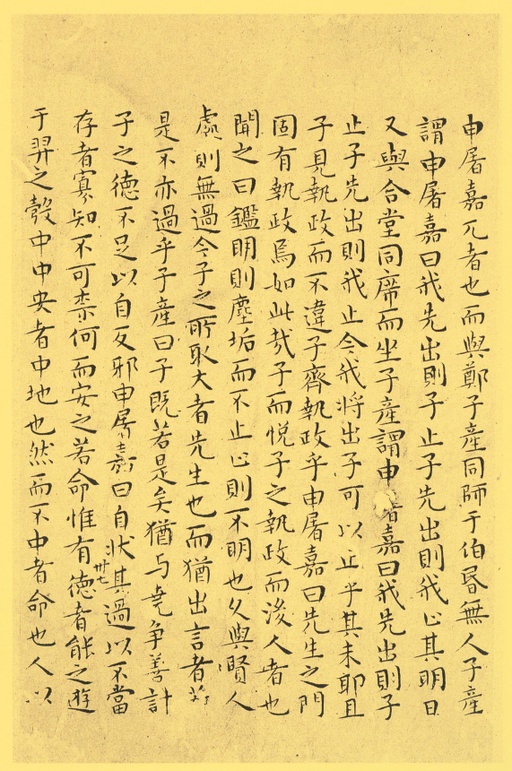 申屠嘉兀者也而與鄭子產同師于伯昬無人子產
謂申屠嘉曰我先出則子止子先出則我止其明日
又與合堂同席而坐子產謂申屠嘉曰我先出則子
止子先出則我止今我將出子可以止乎其未耶且
子見執政而不違子齊執政乎申屠嘉曰先生之門
固有執政焉如此㢤子而悅子之執政而後人者也
聞之曰鑑明則塵垢而不止止則不明也久與賢人
處則無過今子之所取大者先生也而猶出言者若
是不亦過乎子產曰子既若是矣猶与堯爭善計
子之德不足以自反邪申屠嘉曰自狀其過以不當
存者寡知不可柰何而安之若命惟有德者能之遊
于羿之彀中中央者中地也然而不中者命也人以
卅七